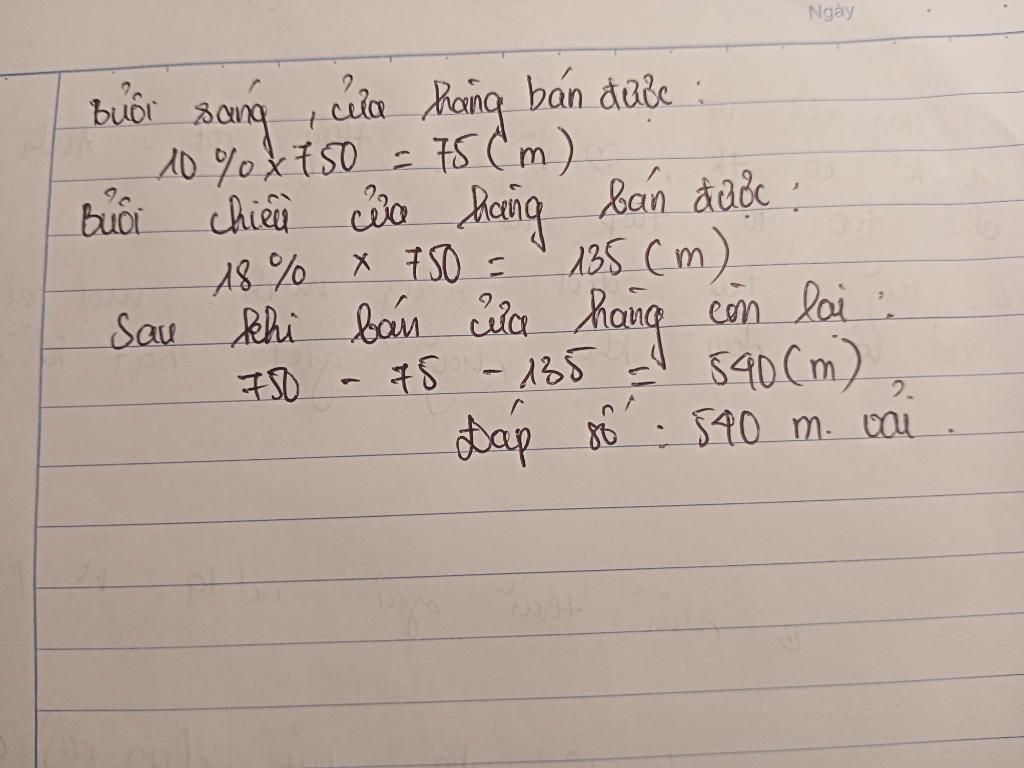 Ngày
Buổi sáng, cửa hàng bán được:
10% x 750 = 75 (m)
Buổi chiều cửa hàng bán được:
18% x 750 = 135 (m)
Sau khi bán cửa hàng còn lại:
750 - 75 - 135 = 540 (m)
Đáp số: 540 m. vải.